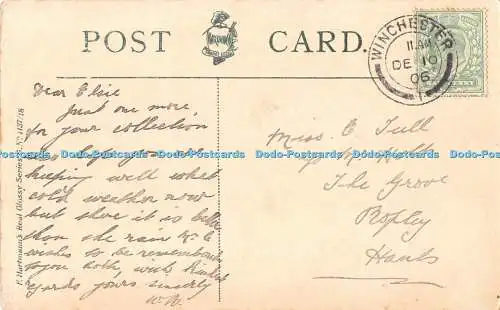 POST CARD.
WINCHESTER
11.AM
DE 10
06
Dear Elsie
Just one more
for your collection
keeping well what
cold weather now
but shure it is better
than the rain Mr C
wishes to be remembered
to you both, with kindest
regards yours sincerely
Miss E Tull
The Grove
Ropley
Hants
F. Hartmann's Real Glossy Series No 4137/18
Dodo-Postcards Dodo-Postcards Dodo-Postcards Dodo-Postcards Dodo-Postcards